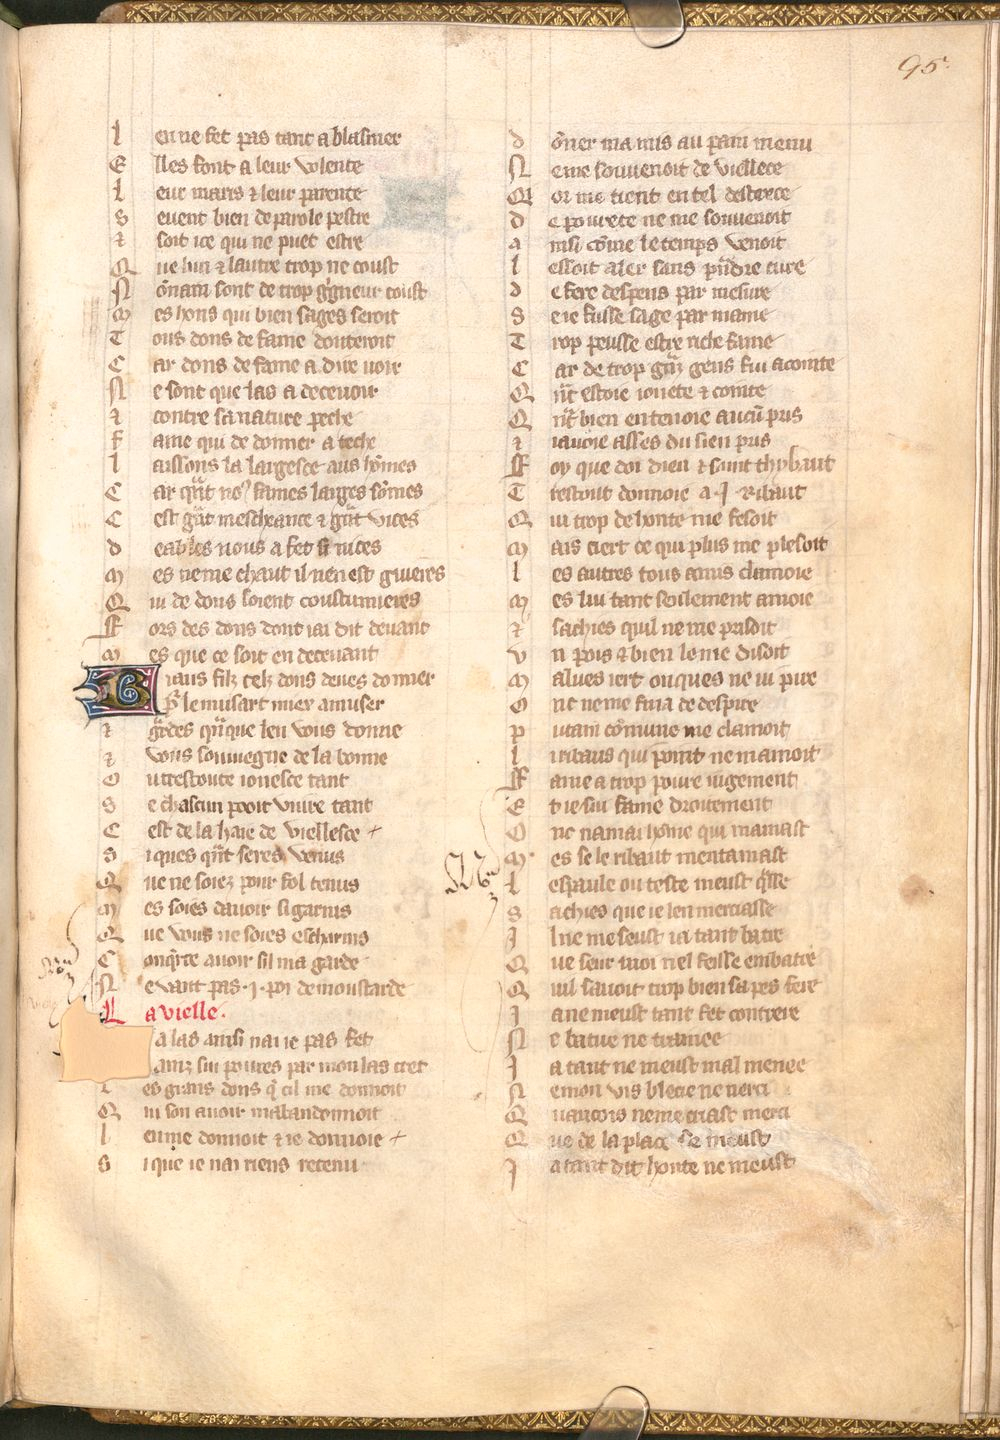 95.
L en ne fet pas tant a blasmer
E lles font a leur volente
L eur maris ⁊ leur parente
S euent bien de parole pestre
⁊ soit ice qui ne puet estre
Q ue lun ⁊ lautre trop ne coust
N õnain sont de trop gͥgneur coust
M es hons qui bien sages seroit
T ous dons de fame douteroit
C ar dons de fame a dire uoir
N e sont que las a deceuoir
⁊ contre sa nature peche
F ame qui de donner a teche
L aissons la largesce aus hõmes
C ar qͣt noꝰ fames larges sõmes
C est gͣt mescheance ⁊ gͣt vices
D eables nous a fet si nices
M es ne me chaut il nen est gueres
Q ui de dons soient coustumieres
F ors des dons dont iai dit deuant
M es que ce soit en deceuant
B iaus filz telz dons deues donner
Pͬ le musart miex amuser
⁊ gͣrdes qͣque len vous donne
⁊ vous souuiegne de la bonne
O u trestoute ionesce tant
S e chascun pooit viure tant
C est de la haie de viellesce
S i ques qͣt seres venus
Q ue ne soiez pour fol tenus
M es soies dauoir si garnis
Q ue vous ne soies escharnis
C onqͬre auoir sil na garde
N e vaut pas .i. poi de moustarde
L a vielle.
a las ainsi nai ie pas fet
ainz sui poures par mon las tret
L es grans dons qͥ cil me donnoit
Q ui son auoir mabandonnoit
L en me donnoit ⁊ ie donnoie
S i que ie nai riens retenu
D õner ma mis au pain menu
N e me souuenoit de viellece
Q or me tient en tel destrece
D e pourete ne me souuenoit
A insi cõme le temps venoit
L essoit aler sans pͬndre cure
D e fere despens par mesure
S e ie fusse sage par mame
T rop peusse estre riche fame
C ar de trop gͣz gens fui acointe
Q ͣt estoie ionete ⁊ cointe
Q ͣt bien en tenoie aucũ pris
⁊ iauoie asses du sien pris
F oy que doi dieu ⁊ saint thybaut
T restout donnoie a .i. ribaut
Q ui trop de honte me fesoit
M ais ciert ce qui plus me plesoit
L es autres tous amis clamoie
M es lui tant seulement amoie
⁊ sachies quil ne me prisoit
V n pois ⁊ bien le me disoit
M alues iert onques ne ui pire
O nc ne me fina de despire
P utain cõmune me clamoit
L i ribaus qui point ne mamoit
F ame a trop poure iugement
E t ie sui fame droitement
O nc namai home qui mamast
M es se le ribaut mentamast
L espaule ou teste meust qͣsse
S achies que ie len merciasse
I l ne me seust ia tant batre
Q ue seur moi nel feisse embatre
Q uil sauoit trop bien sa pes fere
I a ne meust tant fet contrere
N e batue ne trainee
I a tant ne meust mal menee
N e mon vis blecie ne nerci
Q uancois ne me criast merci
Q ue de la place se meust
I a tant dit honte ne meust